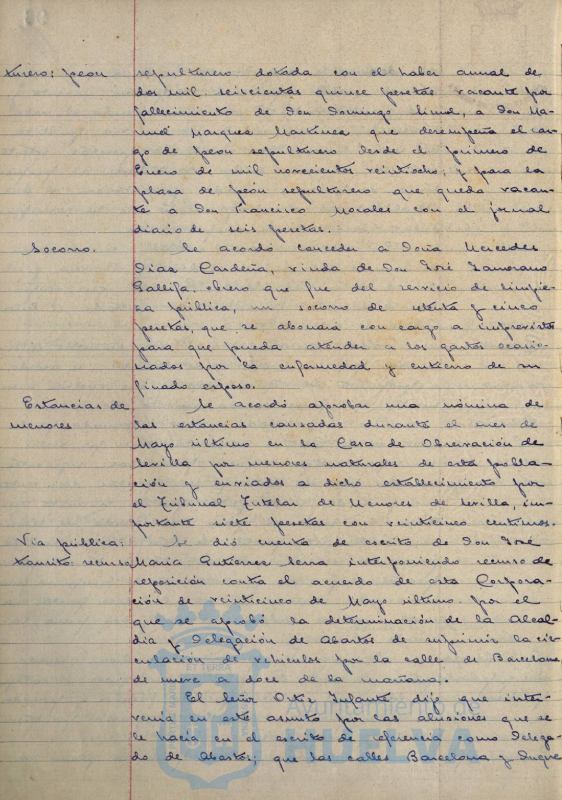 turero; peón sepulturero dotada con el haber anual de
dos mil seiscientas quince pesetas vacante por
fallecimiento de Don Domingo, a Don Ma-
nuel Marquez Martinez que desempeña el car-
go de peón sepulturero desde el primero de
Enero de mil novecientos veintiocho; y para la
plaza de peón sepulturero que queda vacan-
te a Don Francisco Morales con el jornal
diario de seis pesetas.
Socorro. Se acordó conceder a Doña Mercedes
Diaz Cardeña, viuda de Don José Zamorano
Gallifa, obrero que fue del servicio de limpie-
za pública, un socorro de setenta y cinco
pesetas, que se abonará con cargo a imprevistos
para que pueda atender a los gastos ocasio-
nados por la enfermedad y entierro de su
finado esposo.
Estancias de menores Se acordó aprobar una nómina de
las estancias causadas durante el mes de
Mayo último en la Casa de Observación de
Sevilla por menores naturales de esta pobla-
ción y enviados a dicho establecimiento por
el Tribunal Tutelar de Menores de Sevilla, im-
portante siete pesetas con veinticinco centimos.
Via pública: Se dió cuenta de escrito de Don José
transito: recurso Maria Gutierrez Serra interponiendo recurso de
reposición contra el acuerdo de esta Corpora-
ción de veinticinco de Mayo último por el
que se aprobó la determinación de la Alcal-
dia y Delegación de Abastos de suprimir la cir-
culación de vehiculos por la calle de Barcelona
de nueve a doce de la mañana.
El Señor Ortiz Infante dijo que inter-
venia en este asunto por las alusiones que se
le hacía en el escrito de referencia como Delega-
do de Abastos; que las calles Barcelona y Duque
Ayuntamiento de
HUELVA